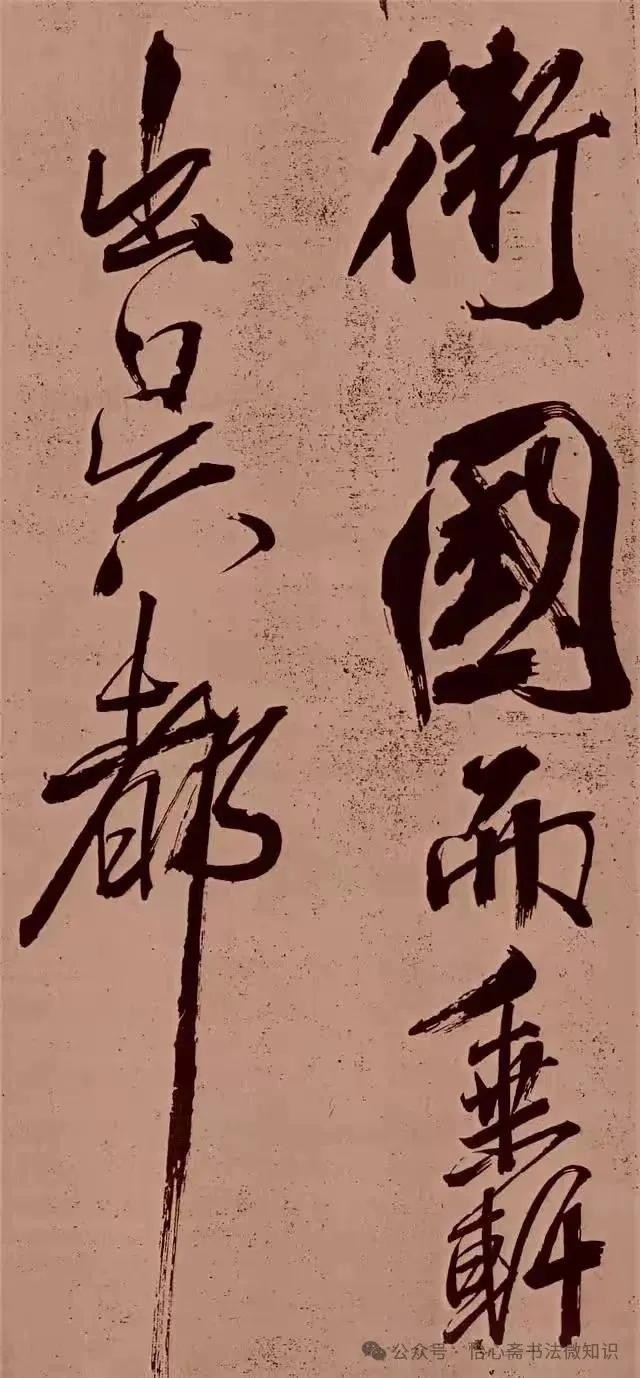 衛國而乘軒
出吳都
公众号 · 怡心斋书法微知识